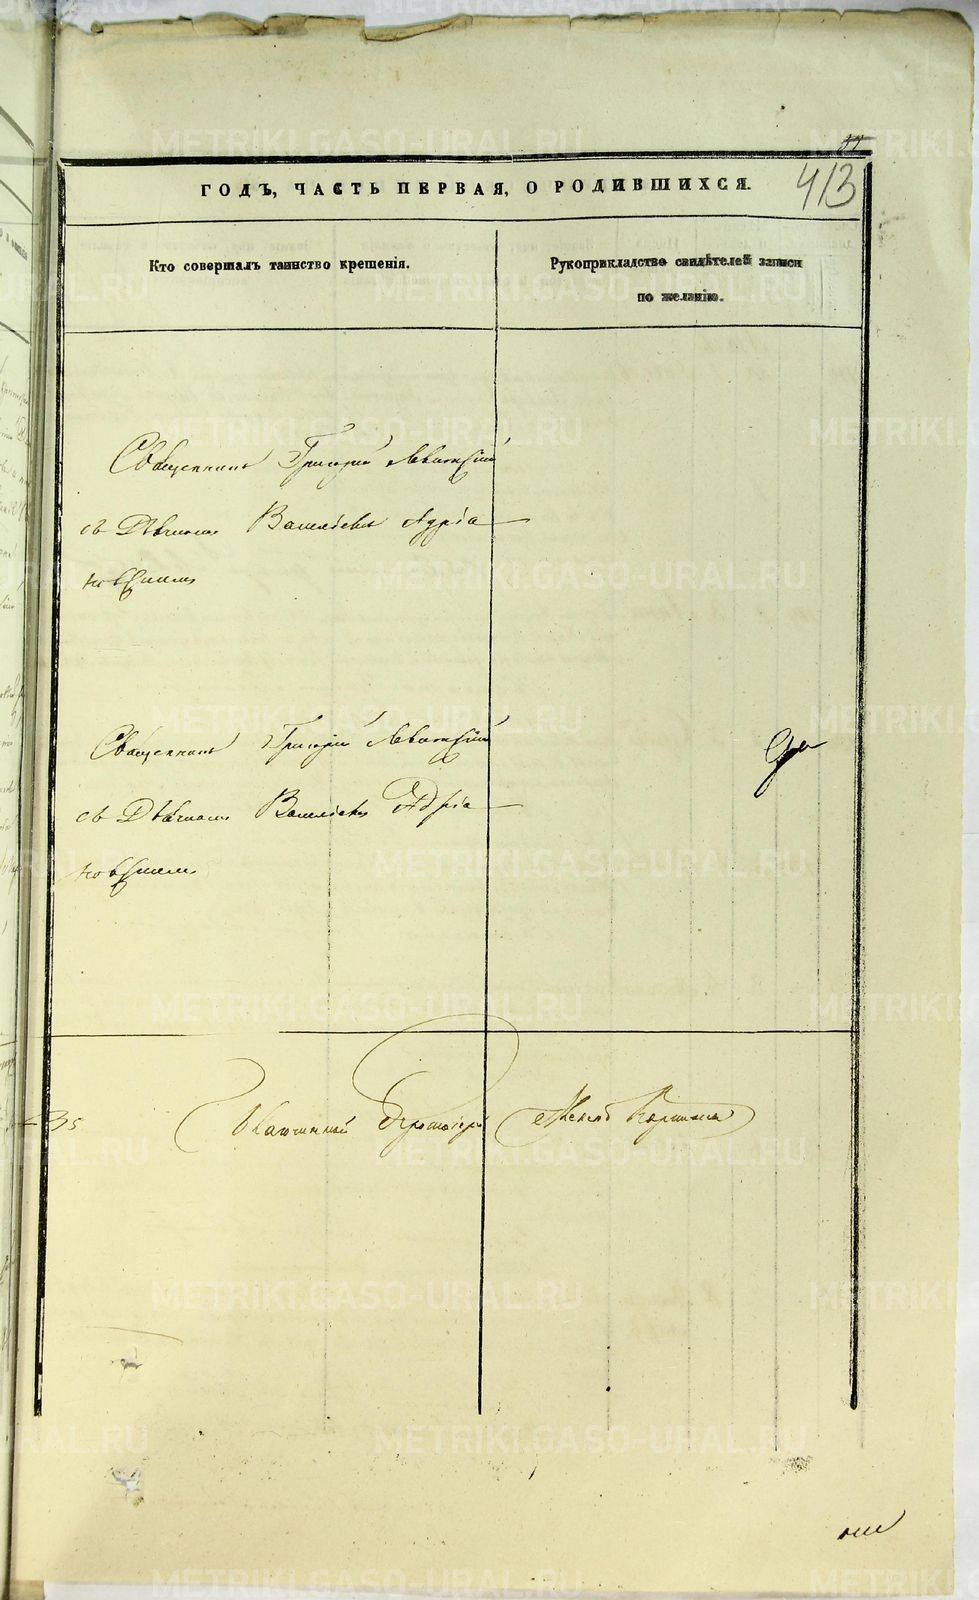 413
ГОДЪ, ЧАСТЬ ПЕРВАЯ, О РОДИВШИХСЯ.
Кто совершалъ таинство крещенія.
Рукоприкладство свидѣтелей записи
по желанію.
Священникъ Григорій Левитскій
съ Дьячкомъ Василіемъ Адріа
новскимъ
Священникъ Григорій Левитскій
съ Дьячкомъ Василіемъ Адріа
новскимъ
METRIKI.GASO-URAL.RU